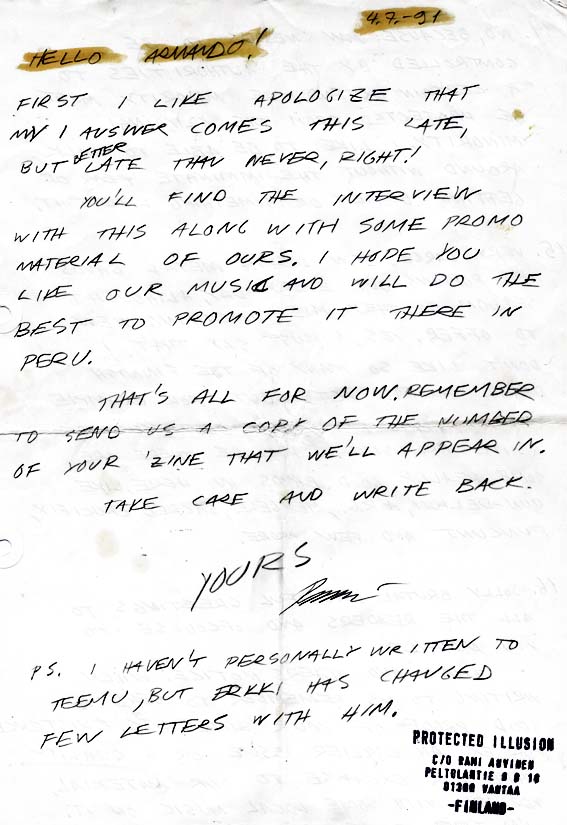 4.7.-91
HELLO ARMANDO!
FIRST I LIKE APOLOGIZE THAT
MY I ANSWER COMES THIS LATE,
BUT BETTER LATE THAN NEVER, RIGHT!
YOU'LL FIND THE INTERVIEW
WITH THIS ALONG WITH SOME PROMO
MATERIAL OF OURS. I HOPE YOU
LIKE OUR MUSIC AND WILL DO THE
BEST TO PROMOTE IT THERE IN
PERU.
THAT'S ALL FOR NOW. REMEMBER
TO SEND US A COPY OF THE NUMBER
OF YOUR 'ZINE THAT WE'LL APPEAR IN.
TAKE CARE AND WRITE BACK.
YOURS
PS. I HAVEN'T PERSONALLY WRITTEN TO
TEEMU, BUT ERKKI HAS CHANGED
FEW LETTERS WITH HIM.
PROTECTED ILLUSION
C/O RAMI AUVINEN
PELTOLANTIE
VANTAA
-FINLAND-